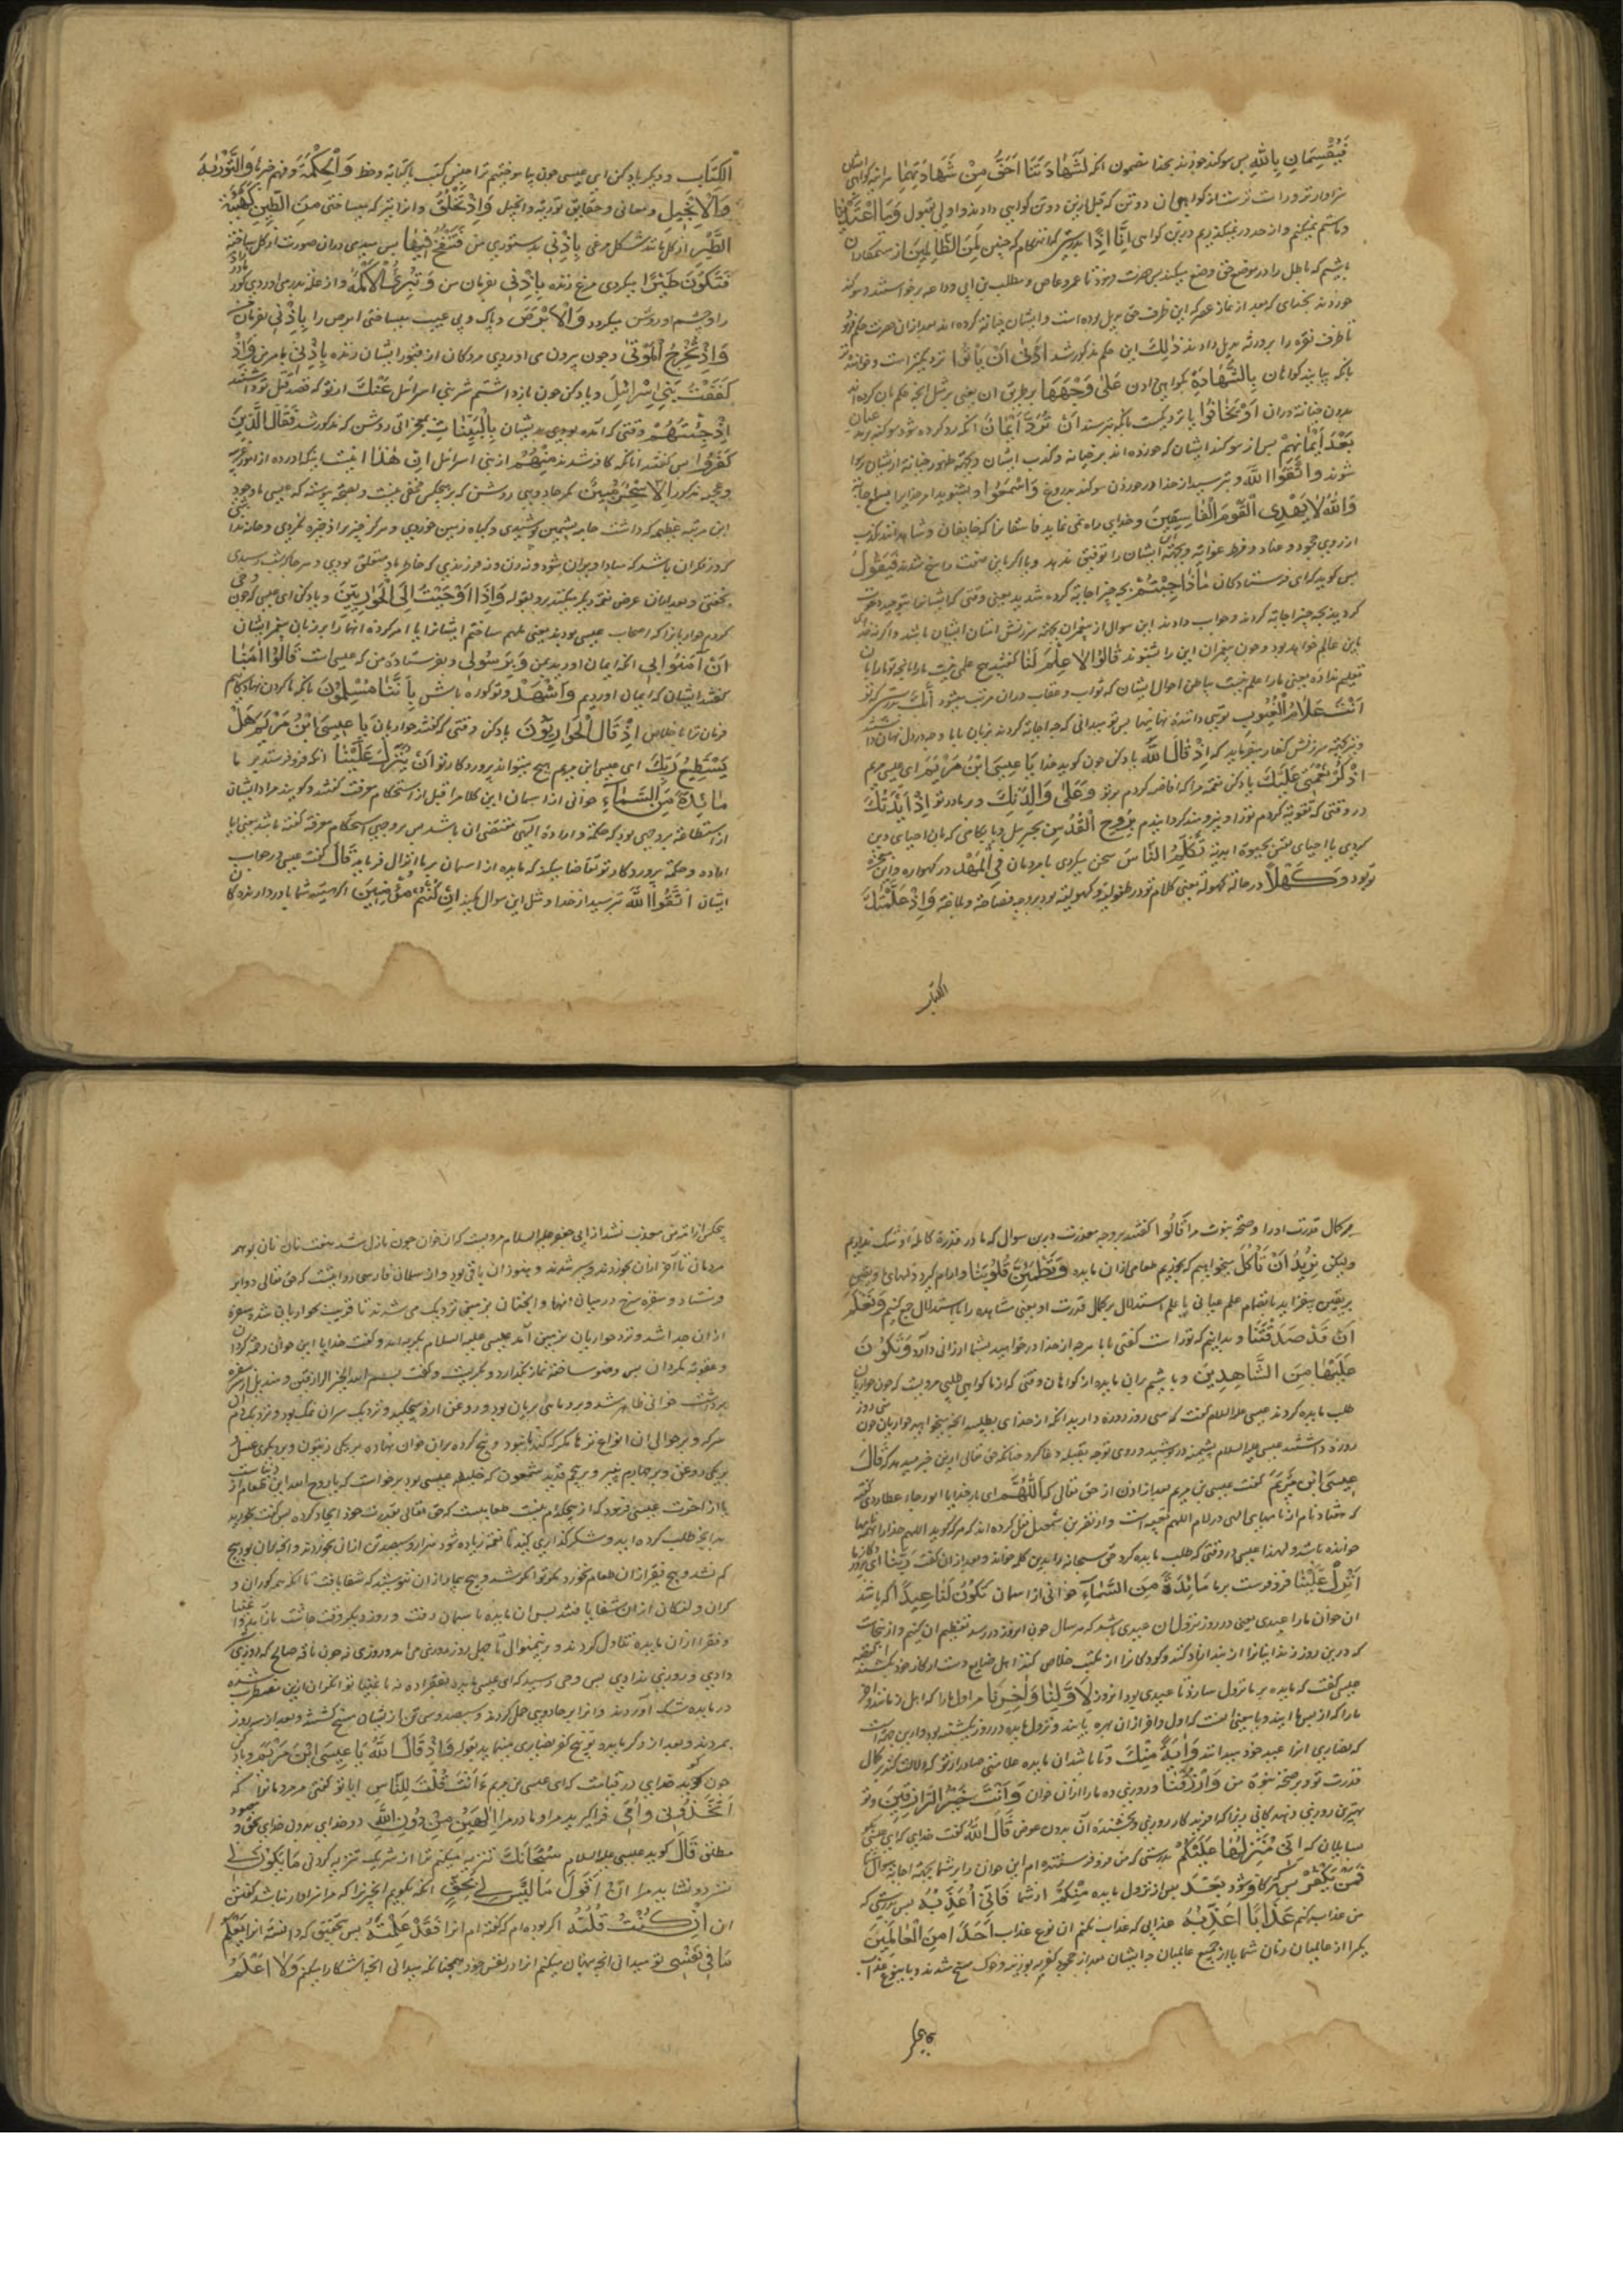 فَيُقْسِمَانِ بِاللَّهِ پس سوکند خورند بخدا بمضمون انکه لَشَهَادَتُنَا اَحَقُّ مِنْ شَهَادَتِهِمَا هر اینه کواهی
سزاوارتر و راست ترست از کواهی ان دو تن که قبل ازین دو تن کواهی دادند و اولی بقبول وَمَا اعْتَدَيْنَا
و ما ستم نمیکنیم و از حد در نمیکذریم درین کواهی اِنَّا اِذًا بدرستی که ما آن هنکام که چنین لَمِنَ الظَّالِمِينَ از ستمکاران
باشیم که باطل را در موضع حق وضع میکنند پس عمرو عاص و مطلب بن ابی وداعه برخواستند و سوکند
خوردند بخدای که بعد از نماز عصر که این ظرف حق بدیل بوده است و ایشان خیانة کرده اند بعد ازان حضرت حکم فرمود
تا ظرف نقره را بورثه بدیل دادند ذٰلِكَ این حکم مذکور شد اَدْنٰى اَنْ يَأْتُوا نزدیکتر است
بانکه بیایند کواهان بِالشَّهَادَةِ بکواهی ادن عَلٰى وَجْهِهَا بر طریق ان یعنی بر مثل انچه
بدون خیانة دران اَوْ يَخَافُوا یا نزدیکست بانکه بترسند اَنْ تُرَدَّ اَيْمَانٌ انکه رد کرده شود سوکند
بَعْدَ اَيْمَانِهِمْ پس از سوکند ایشان که خورده اند بر خیانه و کذب ایشان و بجهة ظهور خیانة ایشان رسوا
شوند وَاتَّقُوا اللَّهَ و بترسید از خدا در خوردن سوکند بدروغ وَاسْمَعُوا و بشنوید امر خدایرا بسمع اجابة
وَاللَّهُ لَا يَهْدِى الْقَوْمَ الْفَاسِقِينَ و خدای راه نمی نماید فاسقانرا که خاینان و شاهدانند بکذب
از روی جحود و عناد و فرط غوایة و بجهة ان ایشان را توفیق ندهد فَيَقُولُ
پس کوید که ای فرستادکان مَاذَا اُجِبْتُمْ بچه چیز اجابة کرده شدید یعنی وقتی که ایشانرا بتوحید دعوت
کردید بچه چیز اجابة کردند و جواب دادند این سوال از پیغمبران بجهة سرزنش امتان ایشان باشد
باین عالم خواهد بود و چون پیغمبران این را بشنوند قَالُوا لَا عِلْمَ لَنَا کفتند هیچ علمی نیست مارا
تعلیم نداده یعنی مارا علم نیست بباطن احوال ایشان که ثواب و عقاب دران مرتب میشود اِنَّكَ بدرستی که تو
اَنْتَ عَلَّامُ الْغُيُوبِ تویی دانندهٔ نهانیها پس تو میدانی که چه اجابة کردند بزبان بما و چه در دل نهان داشتند
و نیز بجهة سرزنش کفار میفرماید که اِذْ قَالَ اللَّهُ یاد کن چون کوید خدا يَا عِيسَى ابْنَ مَرْيَمَ ای عیسی مریم
اذْكُرْ نِعْمَتِى عَلَيْكَ یاد کن نعمة مرا که افاضه کردم بر تو وَعَلٰى وَالِدَتِكَ و بر مادر تو اِذْ اَيَّدْتُكَ
در وقتی که تقویة کردم تو را و نیرومند کردانیدم بِرُوحِ الْقُدُسِ بجبرییل
کردی یا احیای نفس بحیوة ابدیه تُكَلِّمُ النَّاسَ سخن میکردی با مردمان فِى الْمَهْدِ در کهواره
تو بود وَكَهْلًا در حالة کهولة یعنی کلام تو در طفولیة و کهولیة بود بر وجه فصاحة و بلاغة وَاِذْ عَلَّمْتُكَ
الکتاب
الْكِتَابَ و دیکر یاد کن ای عیسی چون بیاموختیم ترا جنس کتب یا کتابة و خط وَالْحِكْمَةَ و فهم چیزها وَالتَّوْرٰيةَ
وَالْاِنْجِيلَ و معانی و حقایق توریة و انجیل وَاِذْ تَخْلُقُ و انرا نیز که میساختی مِنَ الطِّينِ كَهَيْئَةِ
الطَّيْرِ از کل مانند شکل مرغی بِاِذْنِى بدستوری من فَتَنْفُخُ فِيهَا پس میدمیدی دران صورت از کل ساخته
فَتَكُونُ طَيْرًا میکردی مرغ زنده بِاِذْنِى بفرمان من وَتُبْرِئُ الْاَكْمَهَ و از علة بدر می اوردی کور
را و چشم او روشن میکردد وَالْاَبْرَصَ و پاک و بی عیب میساختی ابرص را بِاِذْنِى بفرمان من
وَاِذْ تُخْرِجُ الْمَوْتٰى و چون بیرون می اوردی مردکان از قبور ایشان زنده بِاِذْنِى بامر من وَاِذْ
كَفَفْتُ بَنِى اِسْرَائِيلَ و یاد کن چون باز داشتم شر بنی اسرائیل عَنْكَ از تو که قصد قتل تو داشتند
اِذْ جِئْتَهُمْ وقتی که آمده بودی بدیشان بِالْبَيِّنَاتِ بمعجزاتی روشن که مذکور شد فَقَالَ الَّذِينَ
كَفَرُوا پس کفتند انانکه کافر شدند مِنْهُمْ از بنی اسرائیل اِنْ هٰذَا نیست اینکه اورده از امور
و غیر مذکور اِلَّا سِحْرٌ مُبِينٌ مکر جادویی روشن که بر هیچکس مخفی نیست و بصحة پیوسته که عیسی با وجود
این مرتبه عظیم که داشت جامه پشمین پوشیدی و کیاه زمین خوردی و هرکز چیز برای ذخیره نکردی و خانه نداشتی
که در فکر ان باشد که مبادا ویران شود و نه زن و نه فرزندی که خاطر باو متعلق بودی و هر جا که شب رسیدی
بخفتی و بعد ازان عرض نعمة دیکر میکند بر او بقوله وَاِذْ اَوْحَيْتُ اِلَى الْحَوَارِيِّينَ و یاد کن ای عیسی که چون وحی
کردم حواریانرا که اصحاب عیسی بودند یعنی ملهم ساختم ایشانرا یا امر کردم انها را بر زبان پیغمبر ایشان
اَنْ آمِنُوا بِى انکه ایمان اورید بمن وَبِرَسُولِى و بفرستادهٔ من که عیسی است قَالُوا آمَنَّا
کفتند ایشان که ایمان اوردیم وَاشْهَدْ و تو کواه باش بِاَنَّنَا مُسْلِمُونَ بانکه ما کردن نهادکانیم
فرمان ترا باخلاص اِذْ قَالَ الْحَوَارِيُّونَ یاد کن وقتی که کفتند حواریان يَا عِيسَى ابْنَ مَرْيَمَ هَلْ
يَسْتَطِيعُ رَبُّكَ ای عیسی ابن مریم هیچ میتواند پروردکار تو اَنْ يُنَزِّلَ عَلَيْنَا انکه فرو فرستد بر ما
مَائِدَةً مِنَ السَّمَاءِ خوانی از اسمان این کلام را قبل از استحکام معرفت کفتند و کویند مراد ایشان
از استطاعة بر وجهی بود که حکمة و ارادهٔ الهی مقتضی ان باشد
اراده و حکمة پروردکار تو تقاضا میکند که مایده از اسمان بر ما انزال فرماید قَالَ کفت عیسی در جواب
ایشان اتَّقُوا اللَّهَ بترسید از خدا و مثل این سوال مکنید اِنْ كُنْتُمْ مُؤْمِنِينَ اکر هستید شما باور دارندکان
بر کمال قدرت او را و صحة نبوت مرا قَالُوا کفتند بر وجه معذرت درین سوال که ما در قدرة کامله او شک نداریم
ولیکن نُرِيدُ اَنْ نَأْكُلَ میخواهیم که بخوریم طعامی ازان مایده وَتَطْمَئِنَّ قُلُوبُنَا و ارام کیرد دلهای ما
بر یقین بیفزاید بانضمام علم عیانی با علم استدلال بر کمال قدرت او یعنی مشاهده را با استدلال جمع کنیم وَنَعْلَمَ
اَنْ قَدْ صَدَقْتَنَا و بدانیم که تو راست کفتی با ما هر چه از خدا درخواهید بشما ارزانی دارد وَنَكُونَ
عَلَيْهَا مِنَ الشَّاهِدِينَ و باشیم بران مایده از کواهان وقتی که از ما کواهی طلبی مرویست که چون حواریان
طلب مایده کردند عیسی علیه السلام کفت که سی روز روزه دارید انکه از خدای بطلبید انچه میخواهید حواریان چون سی روز
روزه داشتند عیسی علیه السلام پشمینه در پوشید و روی توجه بقبله دعا کرد چنانکه حق تعالی ازین خبر میدهد که قَالَ
عِيسَى ابْنُ مَرْيَمَ کفت عیسی بن مریم بعد از اذن از حق تعالی که اَللّٰهُمَّ ای بار خدایا ابو رجاء عطاردی کفته
که هفتاد نام از نامهای الهی در لام اللهم تعبیه است و از نضر بن شمیل نقل کرده اند که هر که کوید اللهم خدا را بهمه نامها
خوانده باشد و لهذا عیسی در وقتی که طلب مایده کرد حق سبحانه را بدین کلمه خواند و بعد ازان کفت رَبَّنَا ای پروردکار ما
اَنْزِلْ عَلَيْنَا فرو فرست بر ما مَائِدَةً مِنَ السَّمَاءِ خوانی از اسمان تَكُونُ لَنَا عِيدًا که باشد
ان خوان مارا عیدی یعنی در روز نزول ان عیدی باشد که هر سال چون انروز در رسد تعظیم ان کنیم
عیسی کفت که مایده بر ما نزول ساز تا عیدی بود انروز لِاَوَّلِنَا وَآخِرِنَا
که نصاری انرا عید خود میدانند وَآيَةً مِنْكَ و تا باشد ان مایده علامتی صادر از تو که دلالت کند بر کمال
قدرت تو و بر صحة نبوة من وَارْزُقْنَا و روزی ده مارا ازان خوان وَاَنْتَ خَيْرُ الرَّازِقِينَ و تو
بهترین روزی دهندکانی زیرا که افریدکار روزی و بخشندهٔ آن بدون عوض قَالَ اللَّهُ کفت خدای که ای عیسی بکو
بسایلان که اِنِّى مُنَزِّلُهَا عَلَيْكُمْ بدرستی که من فرو فرستنده ام این خوان را بر شما بجهة اجابة سوال شما
فَمَنْ يَكْفُرْ پس هر که کافر شود بَعْدُ پس از نزول مایده مِنْكُمْ از شما فَاِنِّى اُعَذِّبُهُ پس بدرستی که
من عذاب کنم عَذَابًا لَا اُعَذِّبُهُ عذابی که عذاب نکنم ان نوع عذاب اَحَدًا مِنَ الْعَالَمِينَ
یکی را از عالمیان زمان شما یا از جمیع عالمیان چه ایشان بعد از جحود و کفر بوزینه و خوک مسخ شدند و باینوع عذاب
هیچکس
هیچکس از امتان معذب نشد از ابی جعفر علیه السلام مرویست که ان خوان چون نازل شد هفت نان
مردمان تا آخر ازان بخوردند و سیر شدند و هنوز ان باقی بود و از سلمان فارسی روایتست که حق تعالی دو ابر
فرستاد و سفره سرخ در میان انها و ایشان بزمین نزدیک می شدند تا قریب بحواریان شد سفره
ازان جدا شد و نزد حواریان بزمین آمد عیسی علیه السلام بکریه امد و کفت خدایا این خوان رحمة کردان
و عقوبة مکردان پس وضو ساخته نماز بکذارد و بکریست و کفت بسم الله خیر الرازقین و مندیل از سفره
برداشت خوانی ظاهر شد و برو ماهی بریان بود و روغن ازو میچکید و نزدیک سر ان نمک بود و نزدیک دم ان
سرکه و بر حوالی ان انواع تره ها مکر کندنا نبود و پنج کرده بران خوان نهاده بر یکی زیتون و بر دیکری عسل
بر یکی روغن و بر چهارم پنیر و بر پنجم قدید شمعون که خلیفه عیسی بود برخواست که یا روح الله این طعام از دنیاست
یا از اخرت عیسی فرمود که از هیچکدام نیست طعامیست که حق تعالی بقدرت خود ایجاد کرده پس کفت بخورید
بدانچه طلب کرده اید و شکر کذاری کنید تا نعمة زیاده شود هزار و سیصد تن ازان بخوردند و انخوان بود هیچ
کم نشد و هیچ فقیر ازان طعام نخورد مکر توانکر شد و هیچ بیمار ازان ننوشید که شفا یافت
کران و لنکان ازان شفا یافتند پس ان مایده باسمان رفت و روز دیکر وقت چاشت باز آمد و اغنیا
و فقرا ازان مایده تناول کردند و برینمنوال تا چهل روز بودی می امد و روزی نه چون ناقه صالح که روزی
دادی و روزی ندادی پس وحی رسید که ای عیسی مایده بفقرا ده نه باغنیا توانکران ازین مضطرب شده
در مایده شک آوردند و انرا بر جادویی حمل کردند و سیصد و سی تن از ایشان مسخ کشتند و بعد از سه روز
بمردند و بعد از ذکر مایده توبیخ کفر نصاری مینماید بقوله وَاِذْ قَالَ اللَّهُ يَا عِيسَى ابْنَ مَرْيَمَ و یاد کن
چون کوید خدای در قیامت که ای عیسی بن مریم ءَاَنْتَ قُلْتَ لِلنَّاسِ ایا تو کفتی مر مردمانرا که
اتَّخِذُونِى وَاُمِّىَ فرا کیرید مرا و مادر مرا اِلٰهَيْنِ مِنْ دُونِ اللَّهِ دو خدای بدون خدای بحق و معبود
مطلق قَالَ کوید عیسی علیه السلام سُبْحَانَكَ تنزیه میکنم ترا از شریک تنزیه کردنی مَا يَكُونُ لِى
نسزد و نشاید مرا اَنْ اَقُولَ مَا لَيْسَ لِى بِحَقٍّ انکه بکویم انچیزیرا که مرا سزاوار نباشد کفتن
ان اِنْ كُنْتُ قُلْتُهُ اکر بوده ام که کفته ام انرا فَقَدْ عَلِمْتَهُ پس بتحقیق که دانستهٔ انرا تَعْلَمُ
مَا فِى نَفْسِى تو میدانی انچه پنهان میکنم انرا در نفس خود همچنانکه میدانی انچه اشکارا میکنم وَلَا اَعْلَمُ